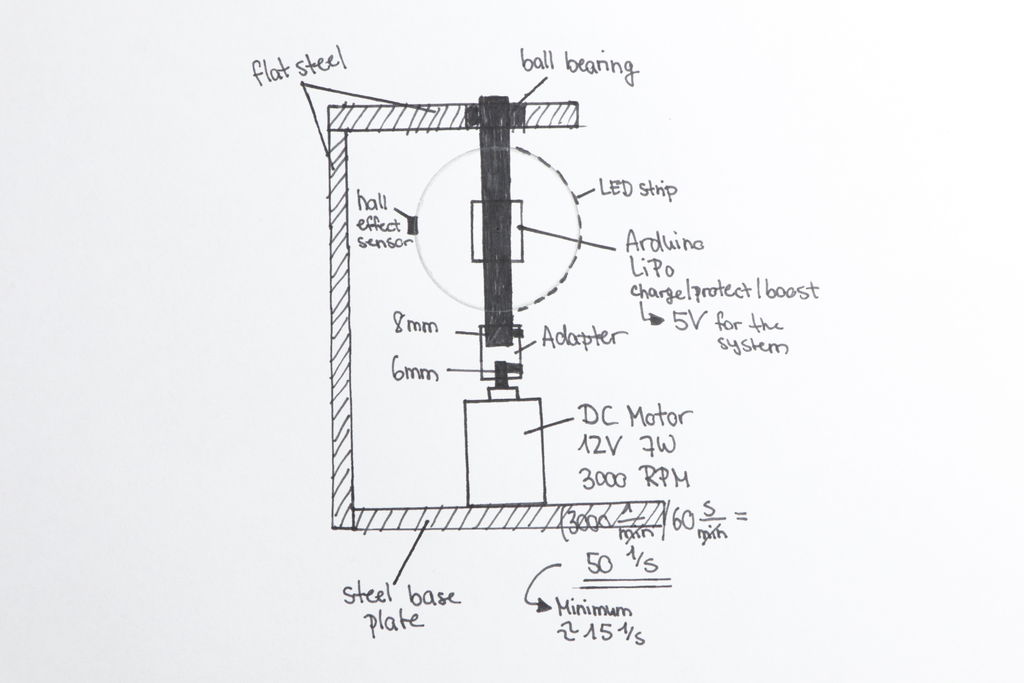 flat steel
ball bearing
LED strip
hall
effect
sensor
Arduino
LiPo
charge/protect/boost
↳ 5V for the
system
8mm
Adapter
6mm
DC Motor
12V 7W
3000 RPM
(3000 1/min)/60 s/min =
50 1/s
steel base
plate
Minimum
≈ 15 1/s